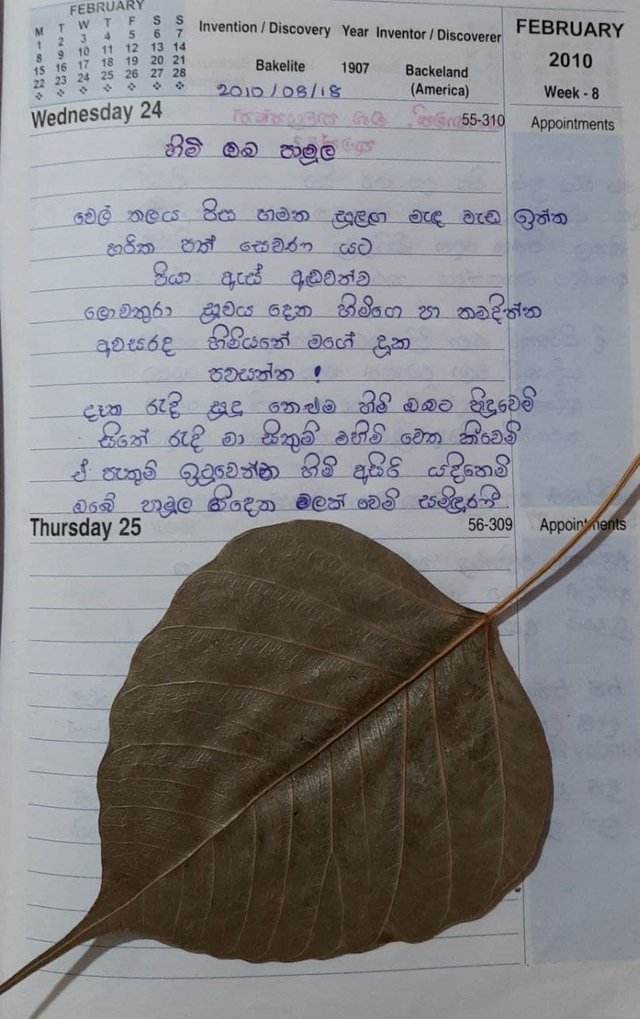 FEBRUARY
M T W T F S S
1 2 3 4 5 6 7
8 9 10 11 12 13 14
15 16 17 18 19 20 21
22 23 24 25 26 27 28
Invention / Discovery Year Inventor / Discoverer
Bakelite 1907 Backeland
(America)
2010/08/18
FEBRUARY
2010
Week - 8
Wednesday 24
55-310
Appointments
හිමි ඔබ පාමුල
වෙල් තලය පිස හමන සුළඟ මැඳ වැඩ ඉන්න
හරිත පත් සෙවණ යට
පියා ඇස් අඩවන්ව
ලොවතුරා සුවය දෙන හිමිගෙ පා නමදින්න
අවසරද හිමියනේ මගේ දුක
පවසන්න !
දෑත රැඳි සුදු නෙළුම හිමි ඔබට පුදවෙමි
සිතේ රැඳි මා සිතුම් මහිමි වෙත කීවෙමි
ඒ පැතුම් ඉටුවෙන්න හිමි අසිරි යදිනෙමි
ඔබේ පාමුල හිඳෙන මලක් වෙමි සමිඳුණි
Thursday 25
56-309
Appointments